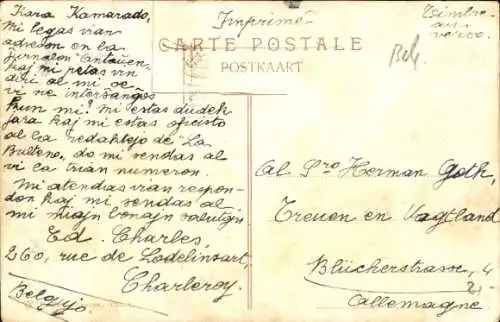 Imprimé
Timbre
au
verso.
CARTE POSTALE
POSTKAART
Belg
Kara Kamarado,
Mi legas vian
adreson en la
jurnalon
kaj mi petas vin
diri al mi ĉe
vi ne interŝanĝos
kun mi? Mi estas dudek
jara kaj mi estas oficisto
al la redaktejo de "La
Bulteno„ do mi sendas al
vi ĉa trian numeron.
Mi atendas vian respon-
don kaj mi sendas al
mi miajn bonajn salutojn
Ed. Charles,
260, rue de Lodelinsart,
Charleroy.
Belgujo.
Al Sro Herman Goth,
Treuen en Vogtland
Blücherstrasse, 4
Allemagne.